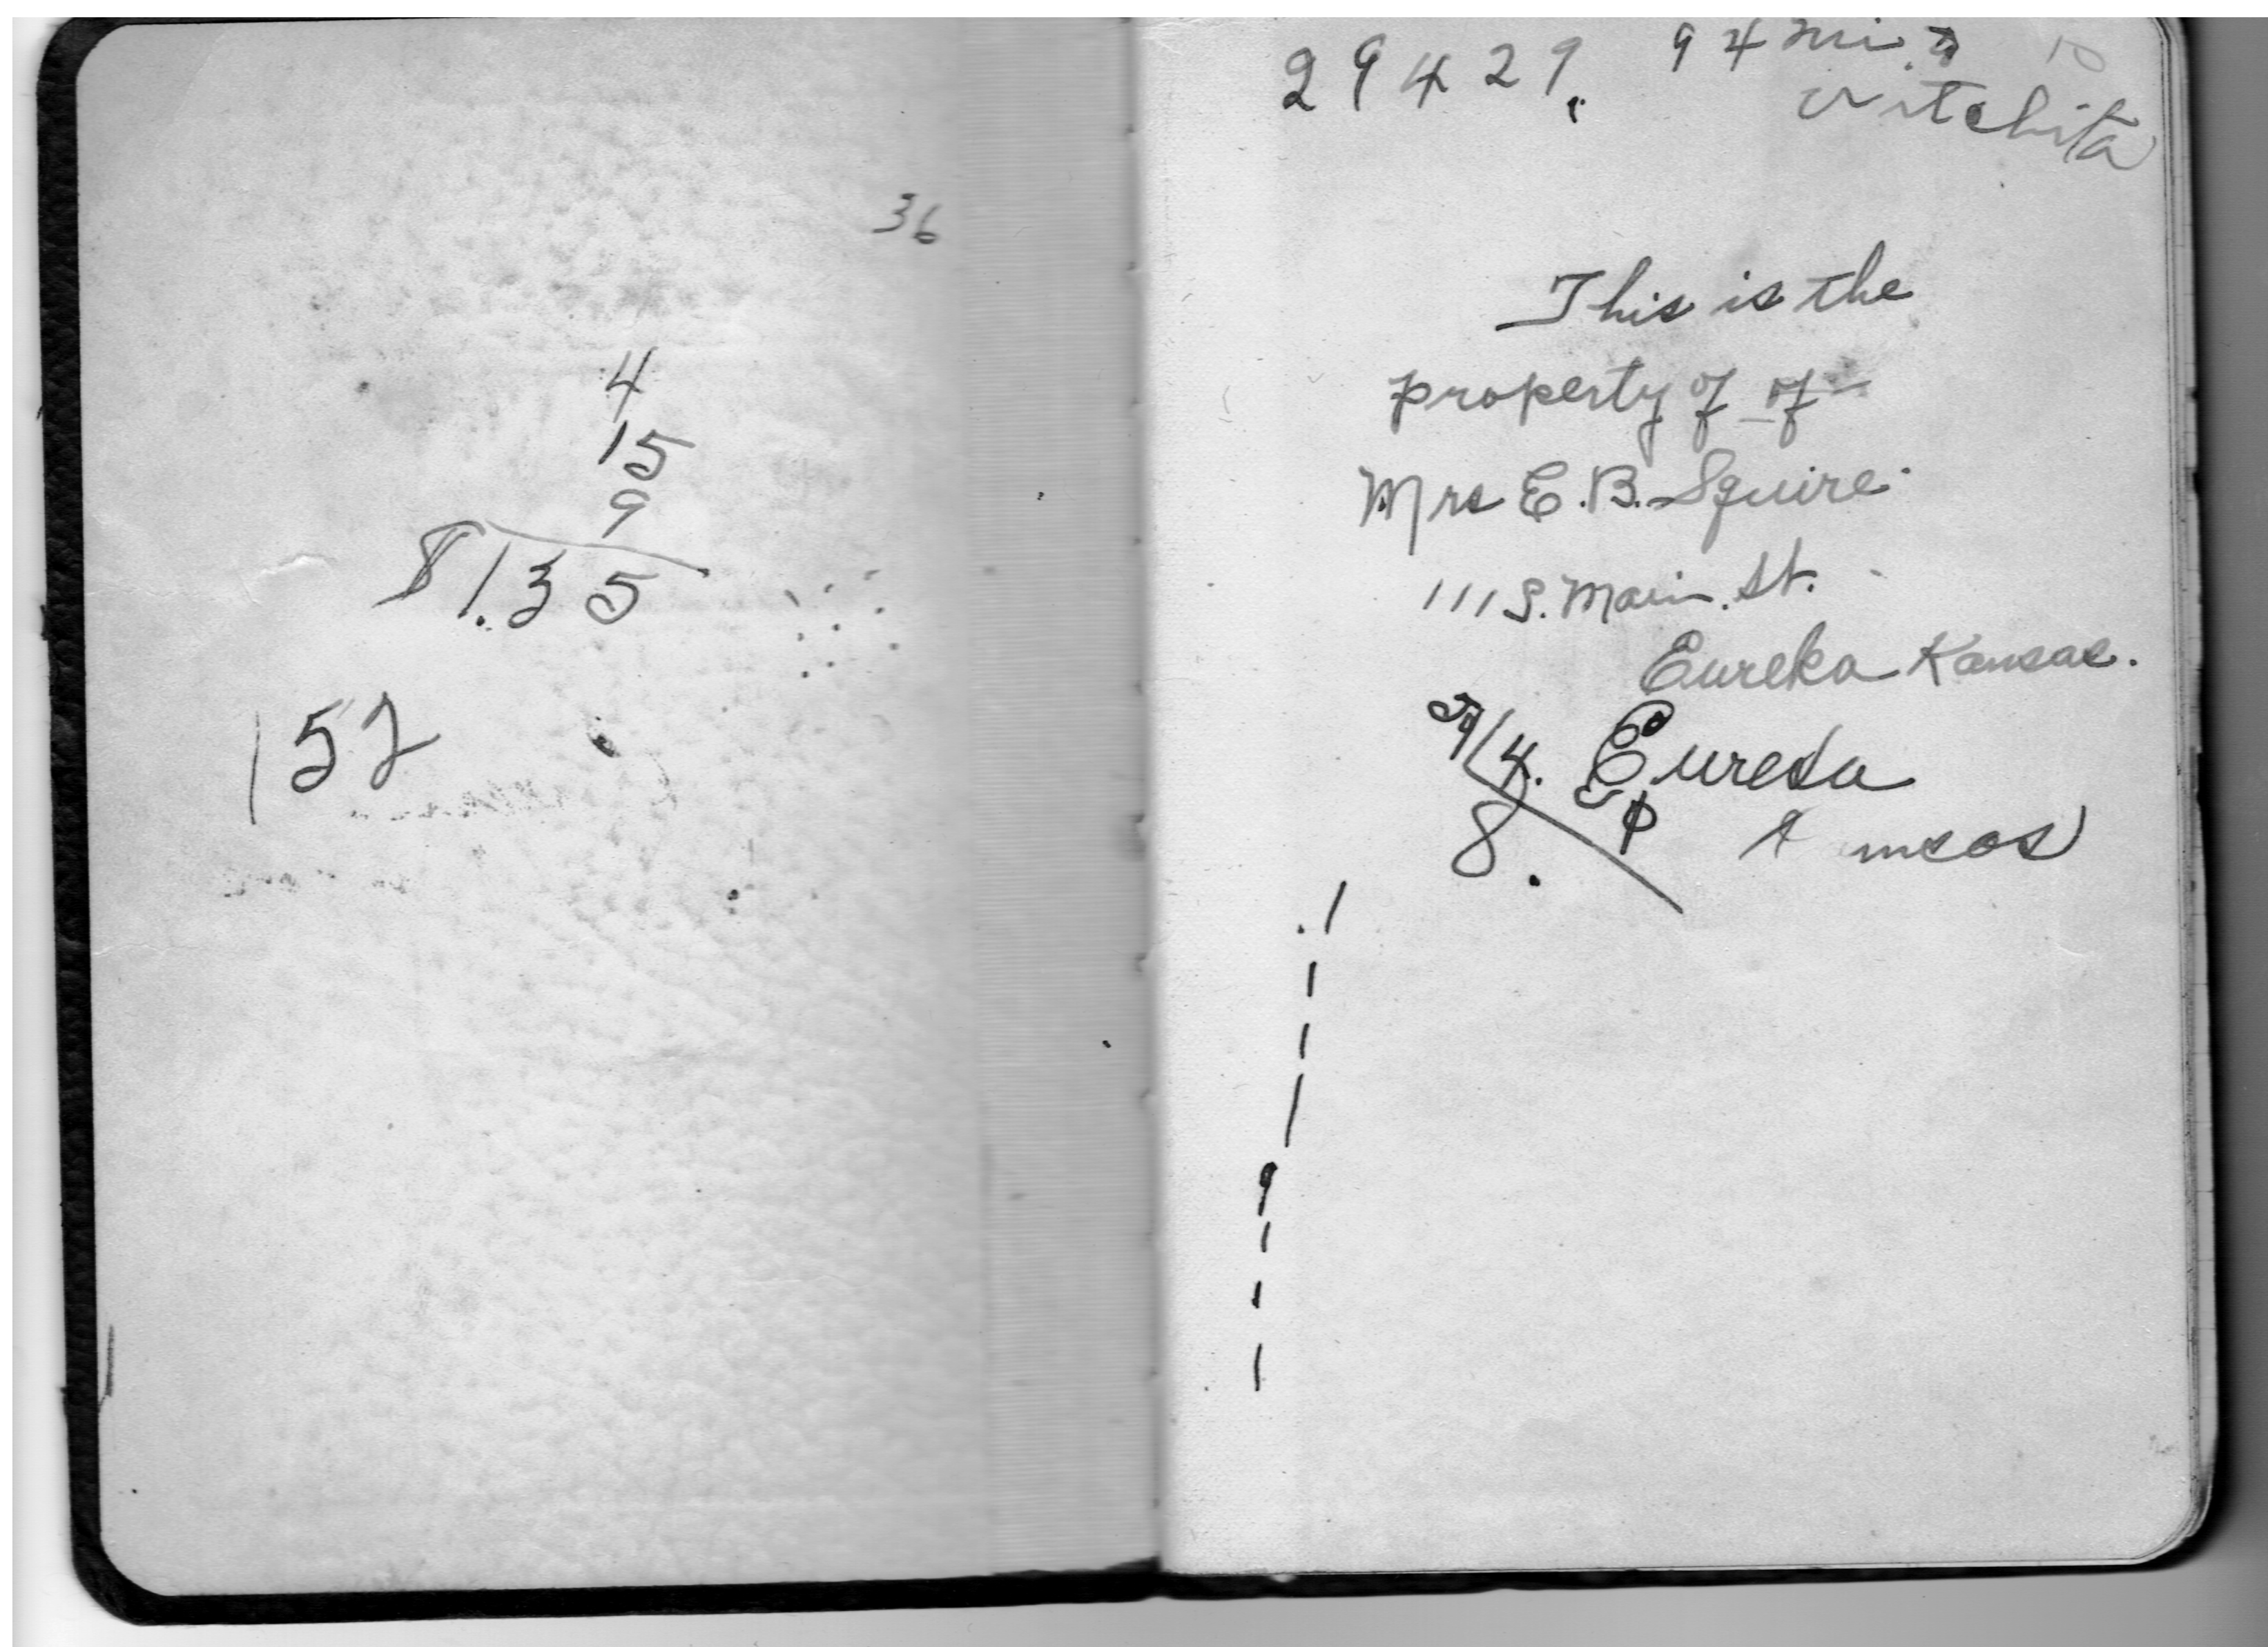 36
4
15
9
81.35
152
29429. 94 mi.
witchita
This is the
property of of
Mrs E.B. Squire
111 S. Main. St.
Eureka Kansas.
Eureka
8.